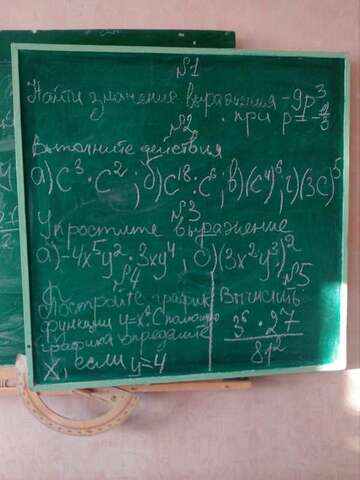 №1
Найти значение выражения -9p³
при p=-1/3
№2
Выполните действия
а) c³·c²; б) c¹⁸:c⁶; в) (c⁴)⁶; г) (3c)⁵
№3
Упростите выражение
а) -4x⁵y²·3xy⁴; б) (3x²y³)²
№4
Постройте график
функции y=x². С помощью
графика определите
x, если y=4
№5
Вычислить
3⁶·27
81²